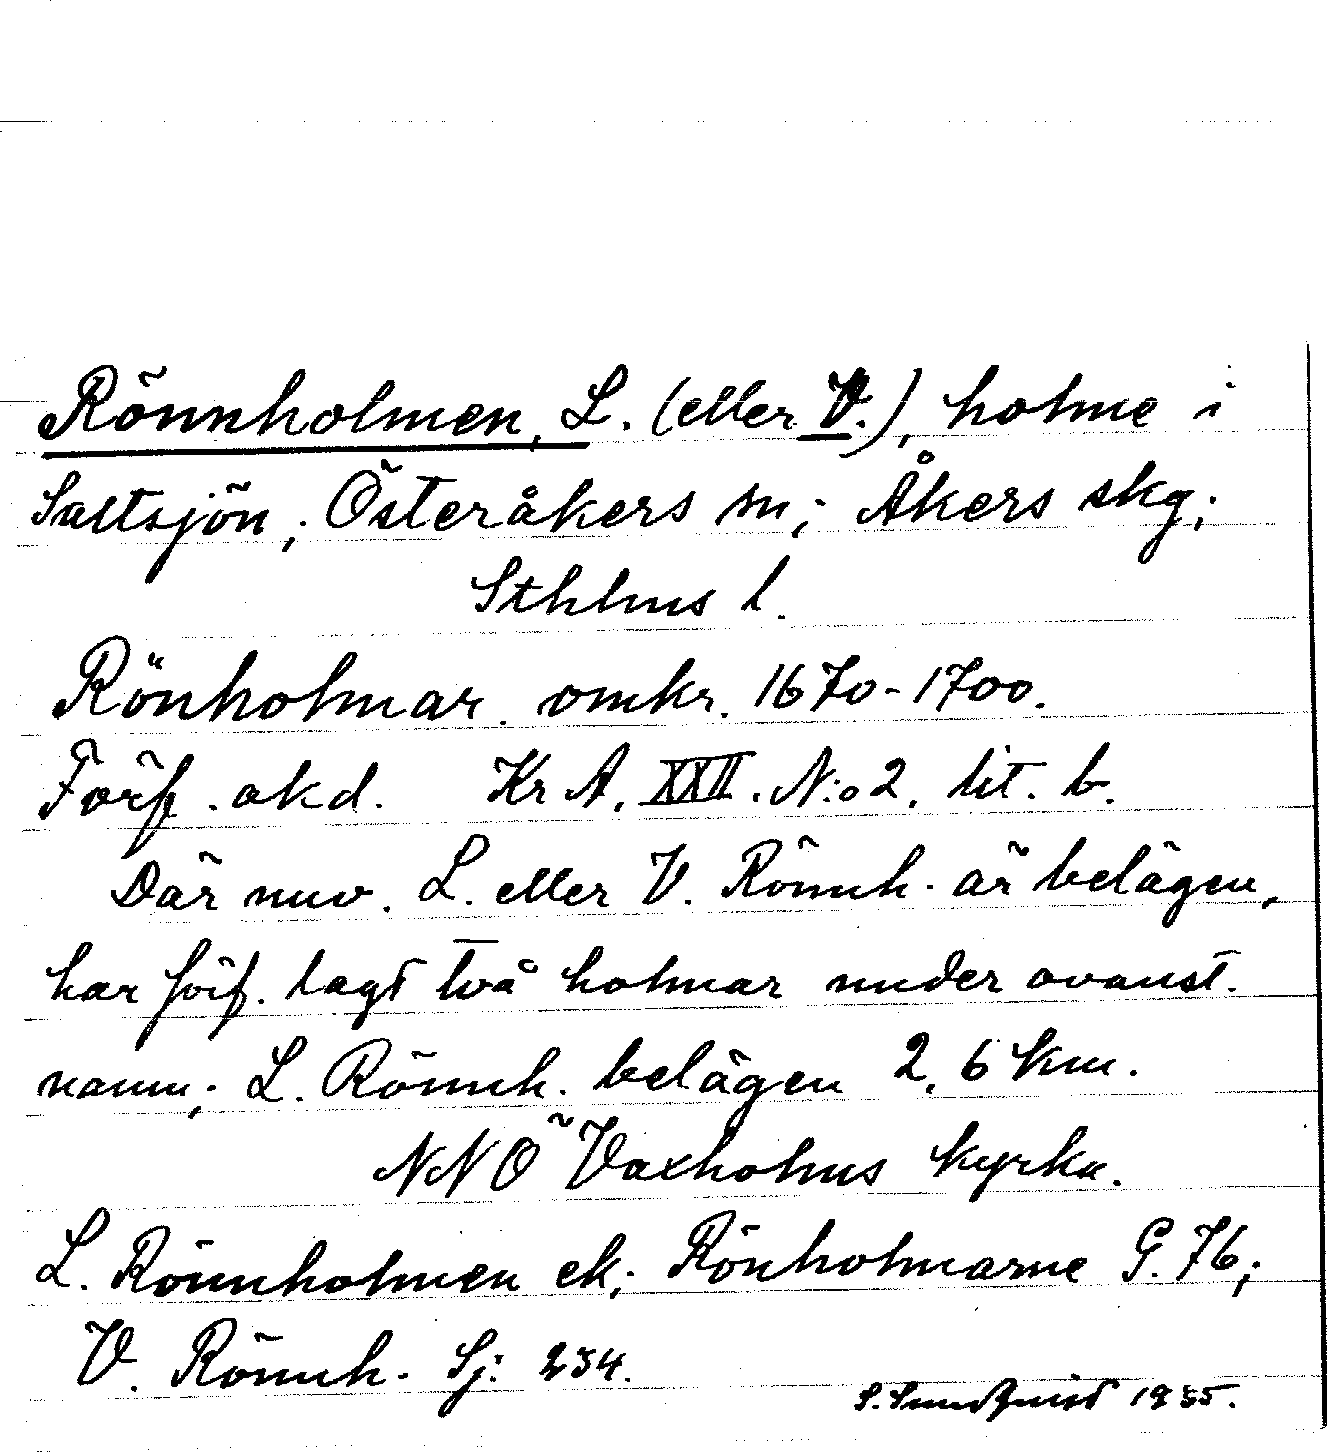 Rönnholmen, L. (eller V.), holme i
Saltsjön; Österåkers sn; Åkers skg;
Sthlms l.
Rönholmar. omkr. 1670-1700.
Förf. okd. Kr A. XXII. N:o 2. lit. b.
Där nuv. L. eller V. Rönnh. är belägen,
har förf. lagt två holmar under ovanst.
namn; L. Rönnh. belägen 2,6 km.
NNO Vaxholms kyrka.
L. Rönnholmen ek; Rönholmarne G. 76;
V. Rönnh. Sj: 234.
S. Sundquist 1935.